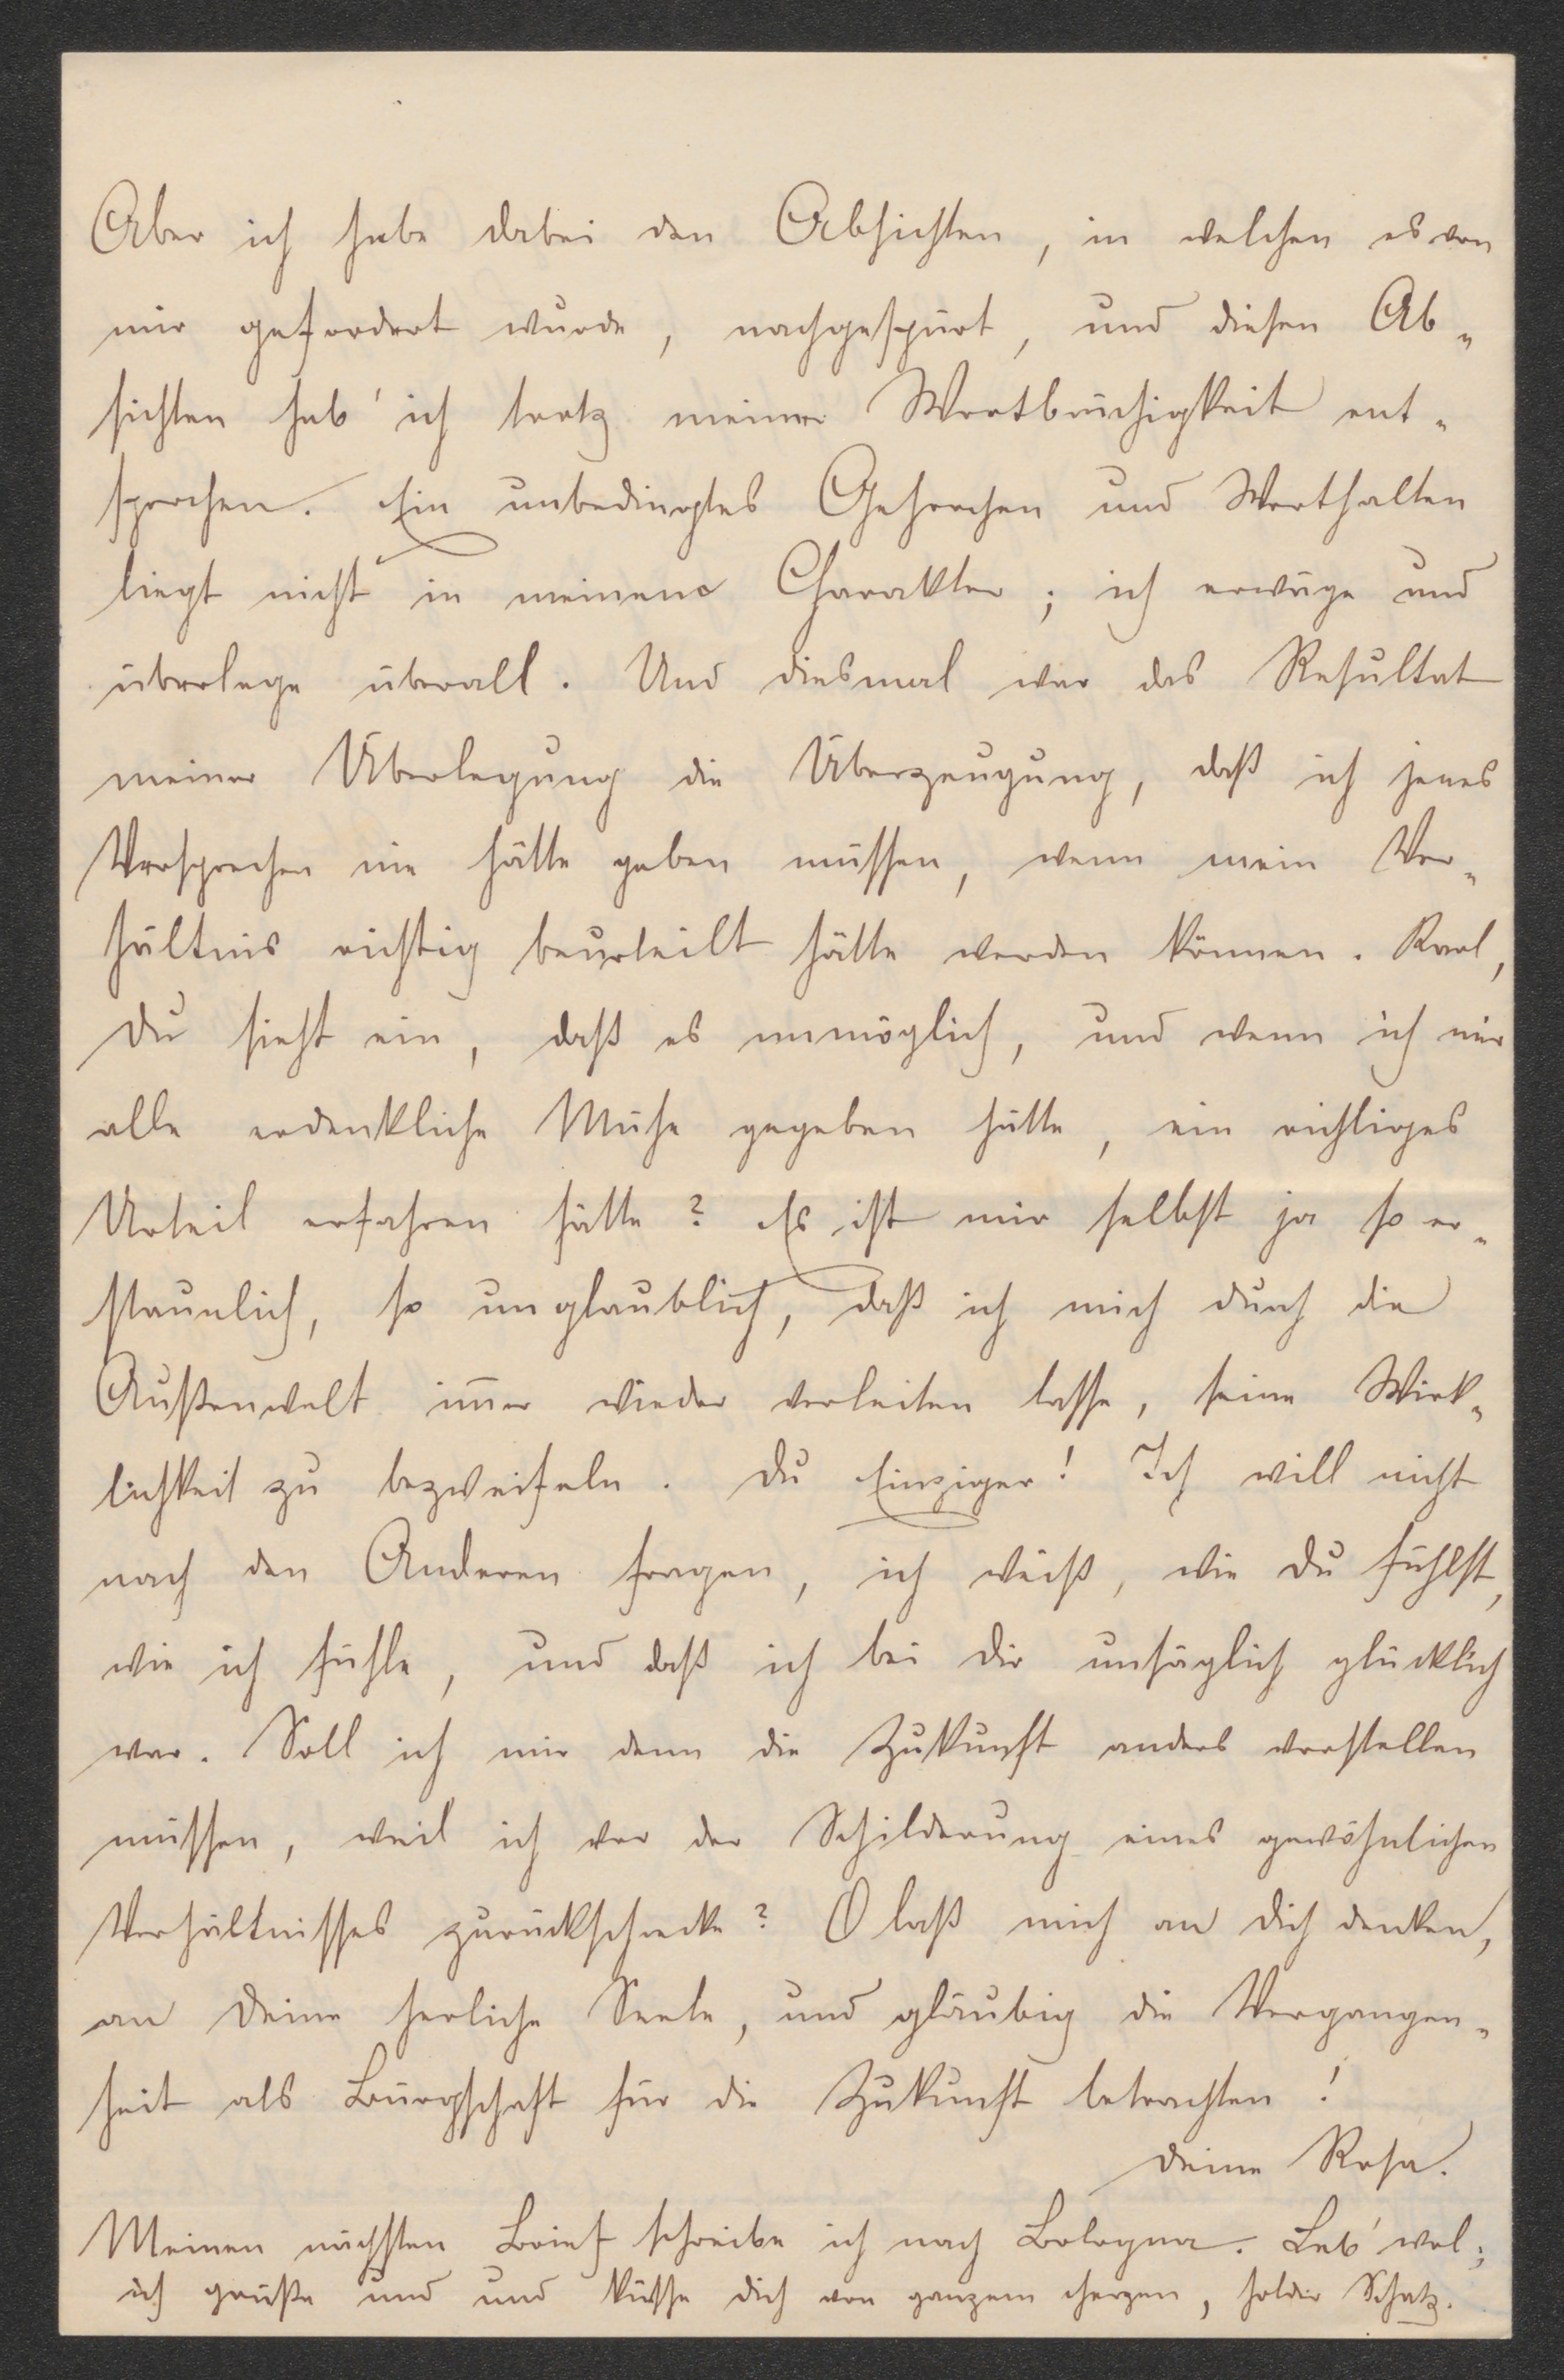 Aber ich habe dabei den Absichten, in welchen es von
mir gefordert wurde, nachgespürt, und diesen Ab-
sichten hab' ich trotz meiner Wortbrüchigkeit ent-
sprochen. Ein unbedingtes Gehorchen und Worthalten
liegt nicht in meinem Charakter; ich erwäge und
überlege überall. Und diesmal war das Resultat
meiner Überlegung die Überzeugung, daß ich jenes
Versprechen nie hätte geben müssen, wenn mein Ver-
hältnis richtig beurteilt hätte werden können. Karl,
Du siehst ein, daß es unmöglich, und wenn ich mir
alle erdenkliche Mühe gegeben hätte, ein richtiges
Urteil erfahren hätte? Es ist mir selbst ja so er-
staunlich, so unglaublich, daß ich mich durch die
Außenwelt im̅er wieder verleiten lasse, seine Wirk-
lichkeit zu bezweifeln. Du Einziger! Ich will nicht
nach den Anderen fragen, ich weiß, wie Du fühlst,
wie ich fühle, und daß ich bei Dir unsäglich glücklich
war. Soll ich mir denn die Zukunft anders vorstellen
müssen, weil ich vor der Schilderung eines gewöhnlichen
Verhältnisses zurückschrecke? O laß mich an Dich denken,
an Deine herliche Seele, und gläubig die Vergangen-
heit als Bürgschaft für die Zukunft betrachten!
Deine Rosa.
Meinen nächsten Brief schreibe ich nach Bologna. Leb' wol;
ich grüße und und küsse Dich von ganzem Herzen, holder Schatz.